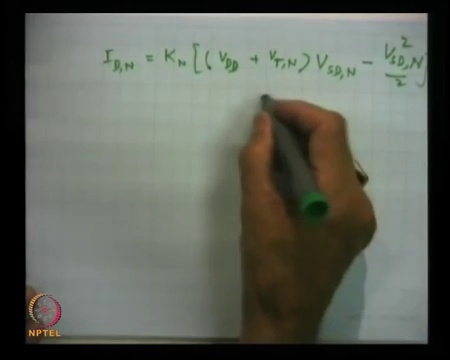 I_{D,N} = K_N [ ( V_{DD} + V_{T,N} ) V_{SD,N} - \frac{V_{SD,N}^2}{2} ]
NPTEL